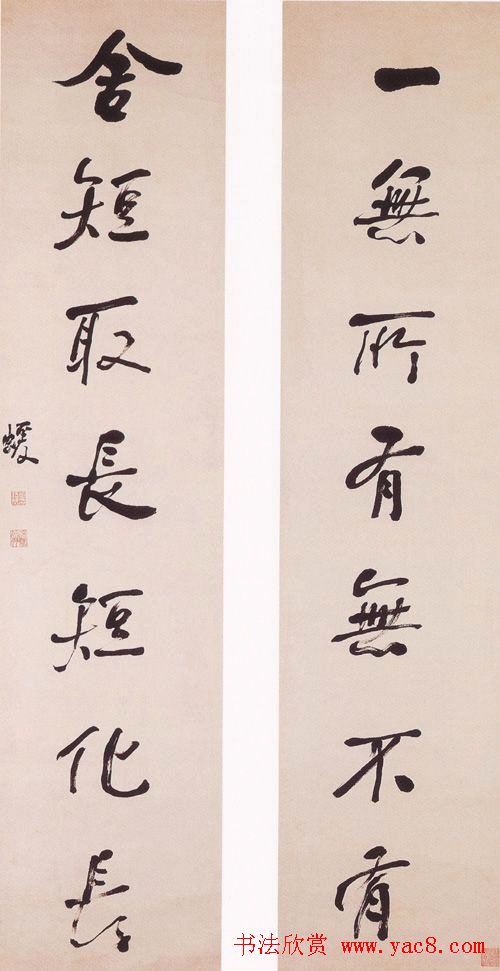 一無所有無不有
舍短取長短化長
书法欣赏 www.yac8.com